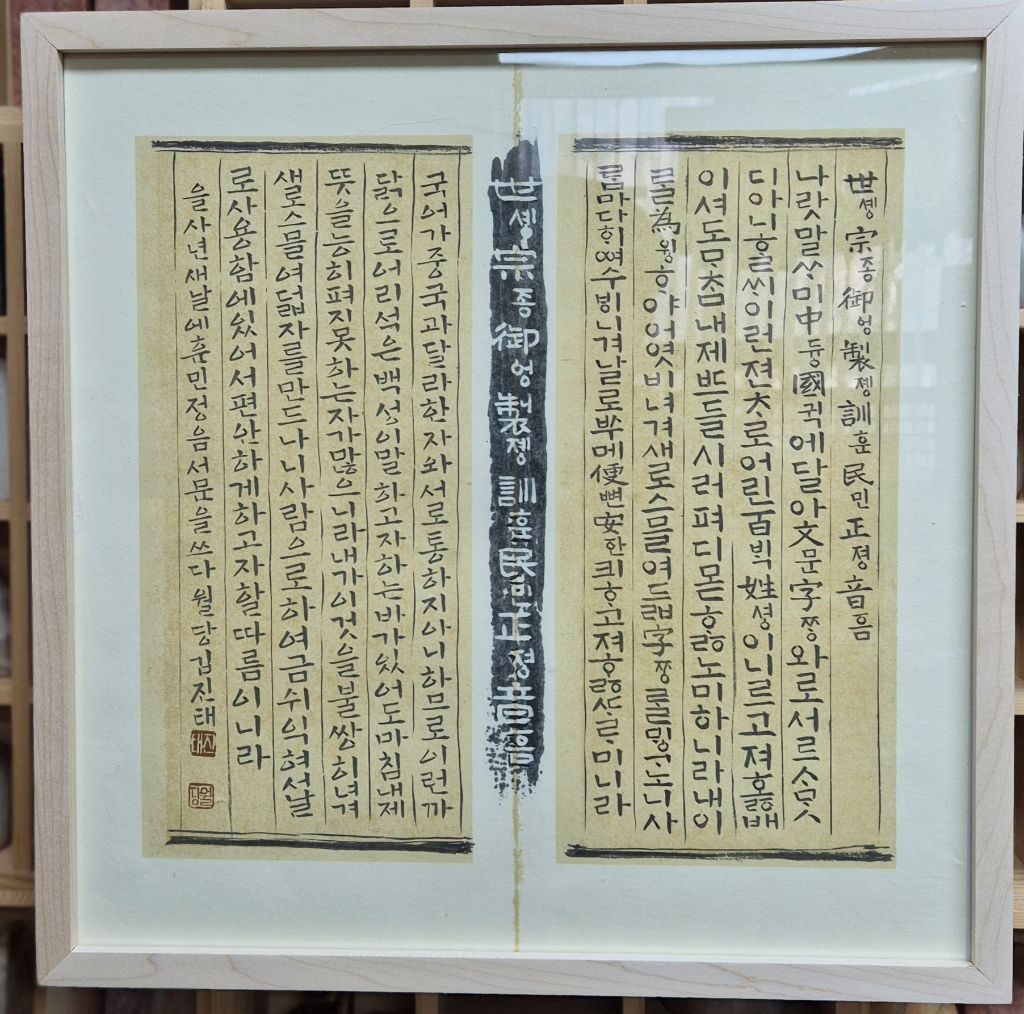 世솅宗종御엉製졩訓훈民민正졍音흠
나랏말ᄊᆞ미中듕國귁에달아文문字ᄍᆞᆼ와로서르ᄉᆞᄆᆞᆺ
디아니ᄒᆞᆯᄊᆡ이런젼ᄎᆞ로어린百ᄇᆡᆨ姓셩이니르고져호ᇙ배
이셔도ᄆᆞᄎᆞᆷ내제ᄠᅳ들시러펴디몯ᄒᆞᇙ노미하니라내이
ᄅᆞᆯ為윙ᄒᆞ야어엿비너겨새로스믈여듧字ᄍᆞᆼᄅᆞᆯᄆᆡᇰᄀᆞ노니사
ᄅᆞᆷ마다ᄒᆡᅇᅧ수ᄫᅵ니겨날로ᄡᅮ메便뼌安한킈ᄒᆞ고져ᄒᆞᇙᄯᆞᄅᆞ미니라
世솅宗종御엉製졩訓훈民민正졍音흠
국어가중국과달라한자와서로통하지아니하므로이런까
닭으로어리석은백성이말하고자하는바가있어도마침내제
뜻을능히펴지못하는자가많으니라내가이것을불쌍히녀겨
새로스믈여덟자를만드나니사람으로하여금쉬익혀서날
로사용함에있어서편안하게하고자할따름이니라
을사년새날에훈민정음서문을쓰다월당김진태
진태
월당